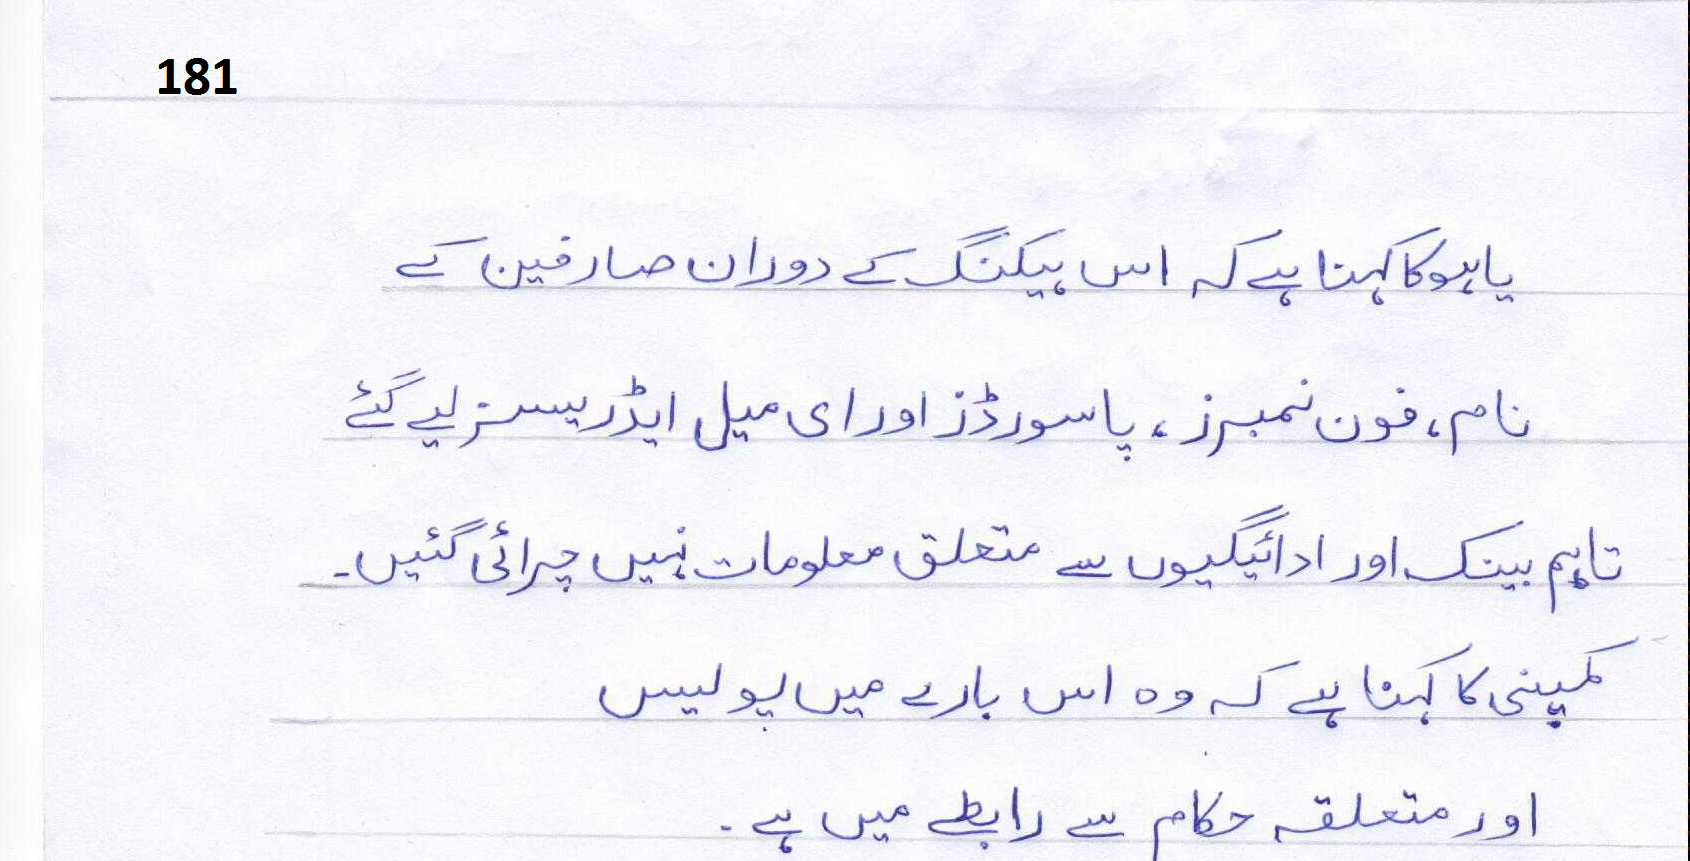 181
یاہو کا کہنا ہے کہ اس ہیکنگ کے دوران صارفین کے
نام، فون نمبرز، پاسورڈز اور ای میل ایڈریسز لیے گئے
تاہم بینک اور ادائیگیوں سے متعلق معلومات نہیں چرائی گئیں۔
کمپنی کا کہنا ہے کہ وہ اس بارے میں پولیس
اور متعلقہ حکام سے رابطے میں ہے۔